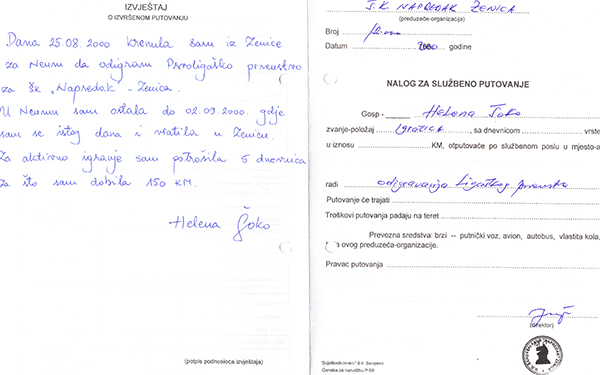 IZVJEŠTAJ
O IZVRŠENOM PUTOVANJU
Dana 25.08.2000 krenula sam iz Zenice
za Neum da odigram Prvoligaško prvenstvo
za ŠK „Napredak" - Zenica.
U Neumu sam ostala do 02.09.2000. gdje
sam se istog dana i vratila u Zenicu.
Za aktivno igranje sam potrošila 5 dnevnica
za što sam dobila 150 KM.
Helena Šoko
(potpis podnosioca izvještaja)
Š.K NAPREDAK ZENICA
(preduzeće-organizacija)
Broj
Datum 2000 godine
NALOG ZA SLUŽBENO PUTOVANJE
Gosp - Helena Šoko
zvanje-položaj igračica, sa dnevnicom vrste
u iznosu KM, otputovaće po službenom poslu u mjesto-a
radi odigravanja Ligaškog prvenstva
Putovanje će trajati
Troškovi putovanja padaju na teret
Prevozna sredstva: brzi -- putnički voz, avion, autobus, vlastita kola,
ovog preduzeća-organizacije.
Pravac putovanja
(direktor)
"Svjetlostkomerc" d.d. Sarajevo
Oznaka za narudžbu P-08